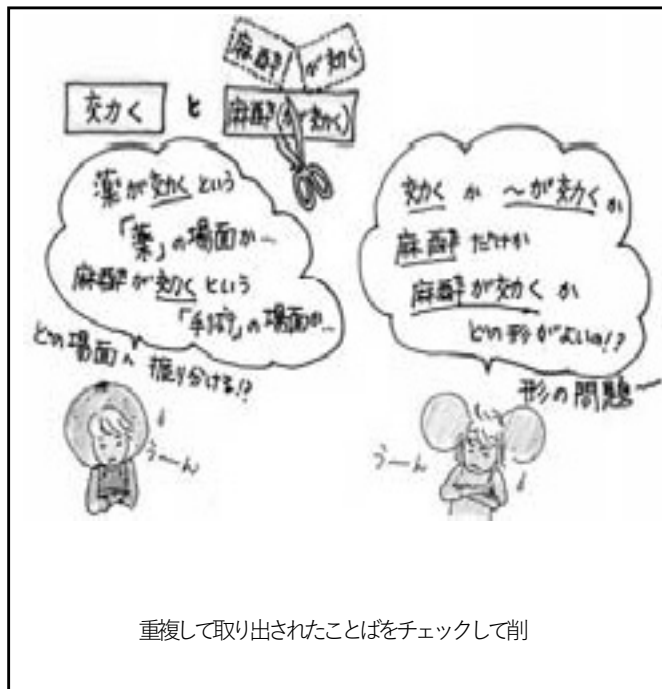 麻酔 が効く
効く と 麻酔(が効く)
薬が効くという
「薬」の場面か〜
麻酔が効くという
「手術」の場面か〜
どの場面へ 振り分ける!?
うーん
効く か 〜が効くか
麻酔だけか
麻酔が効くか
どの形がよいの!?
形の問題〜
うーん
重複して取り出されたことばをチェックして削